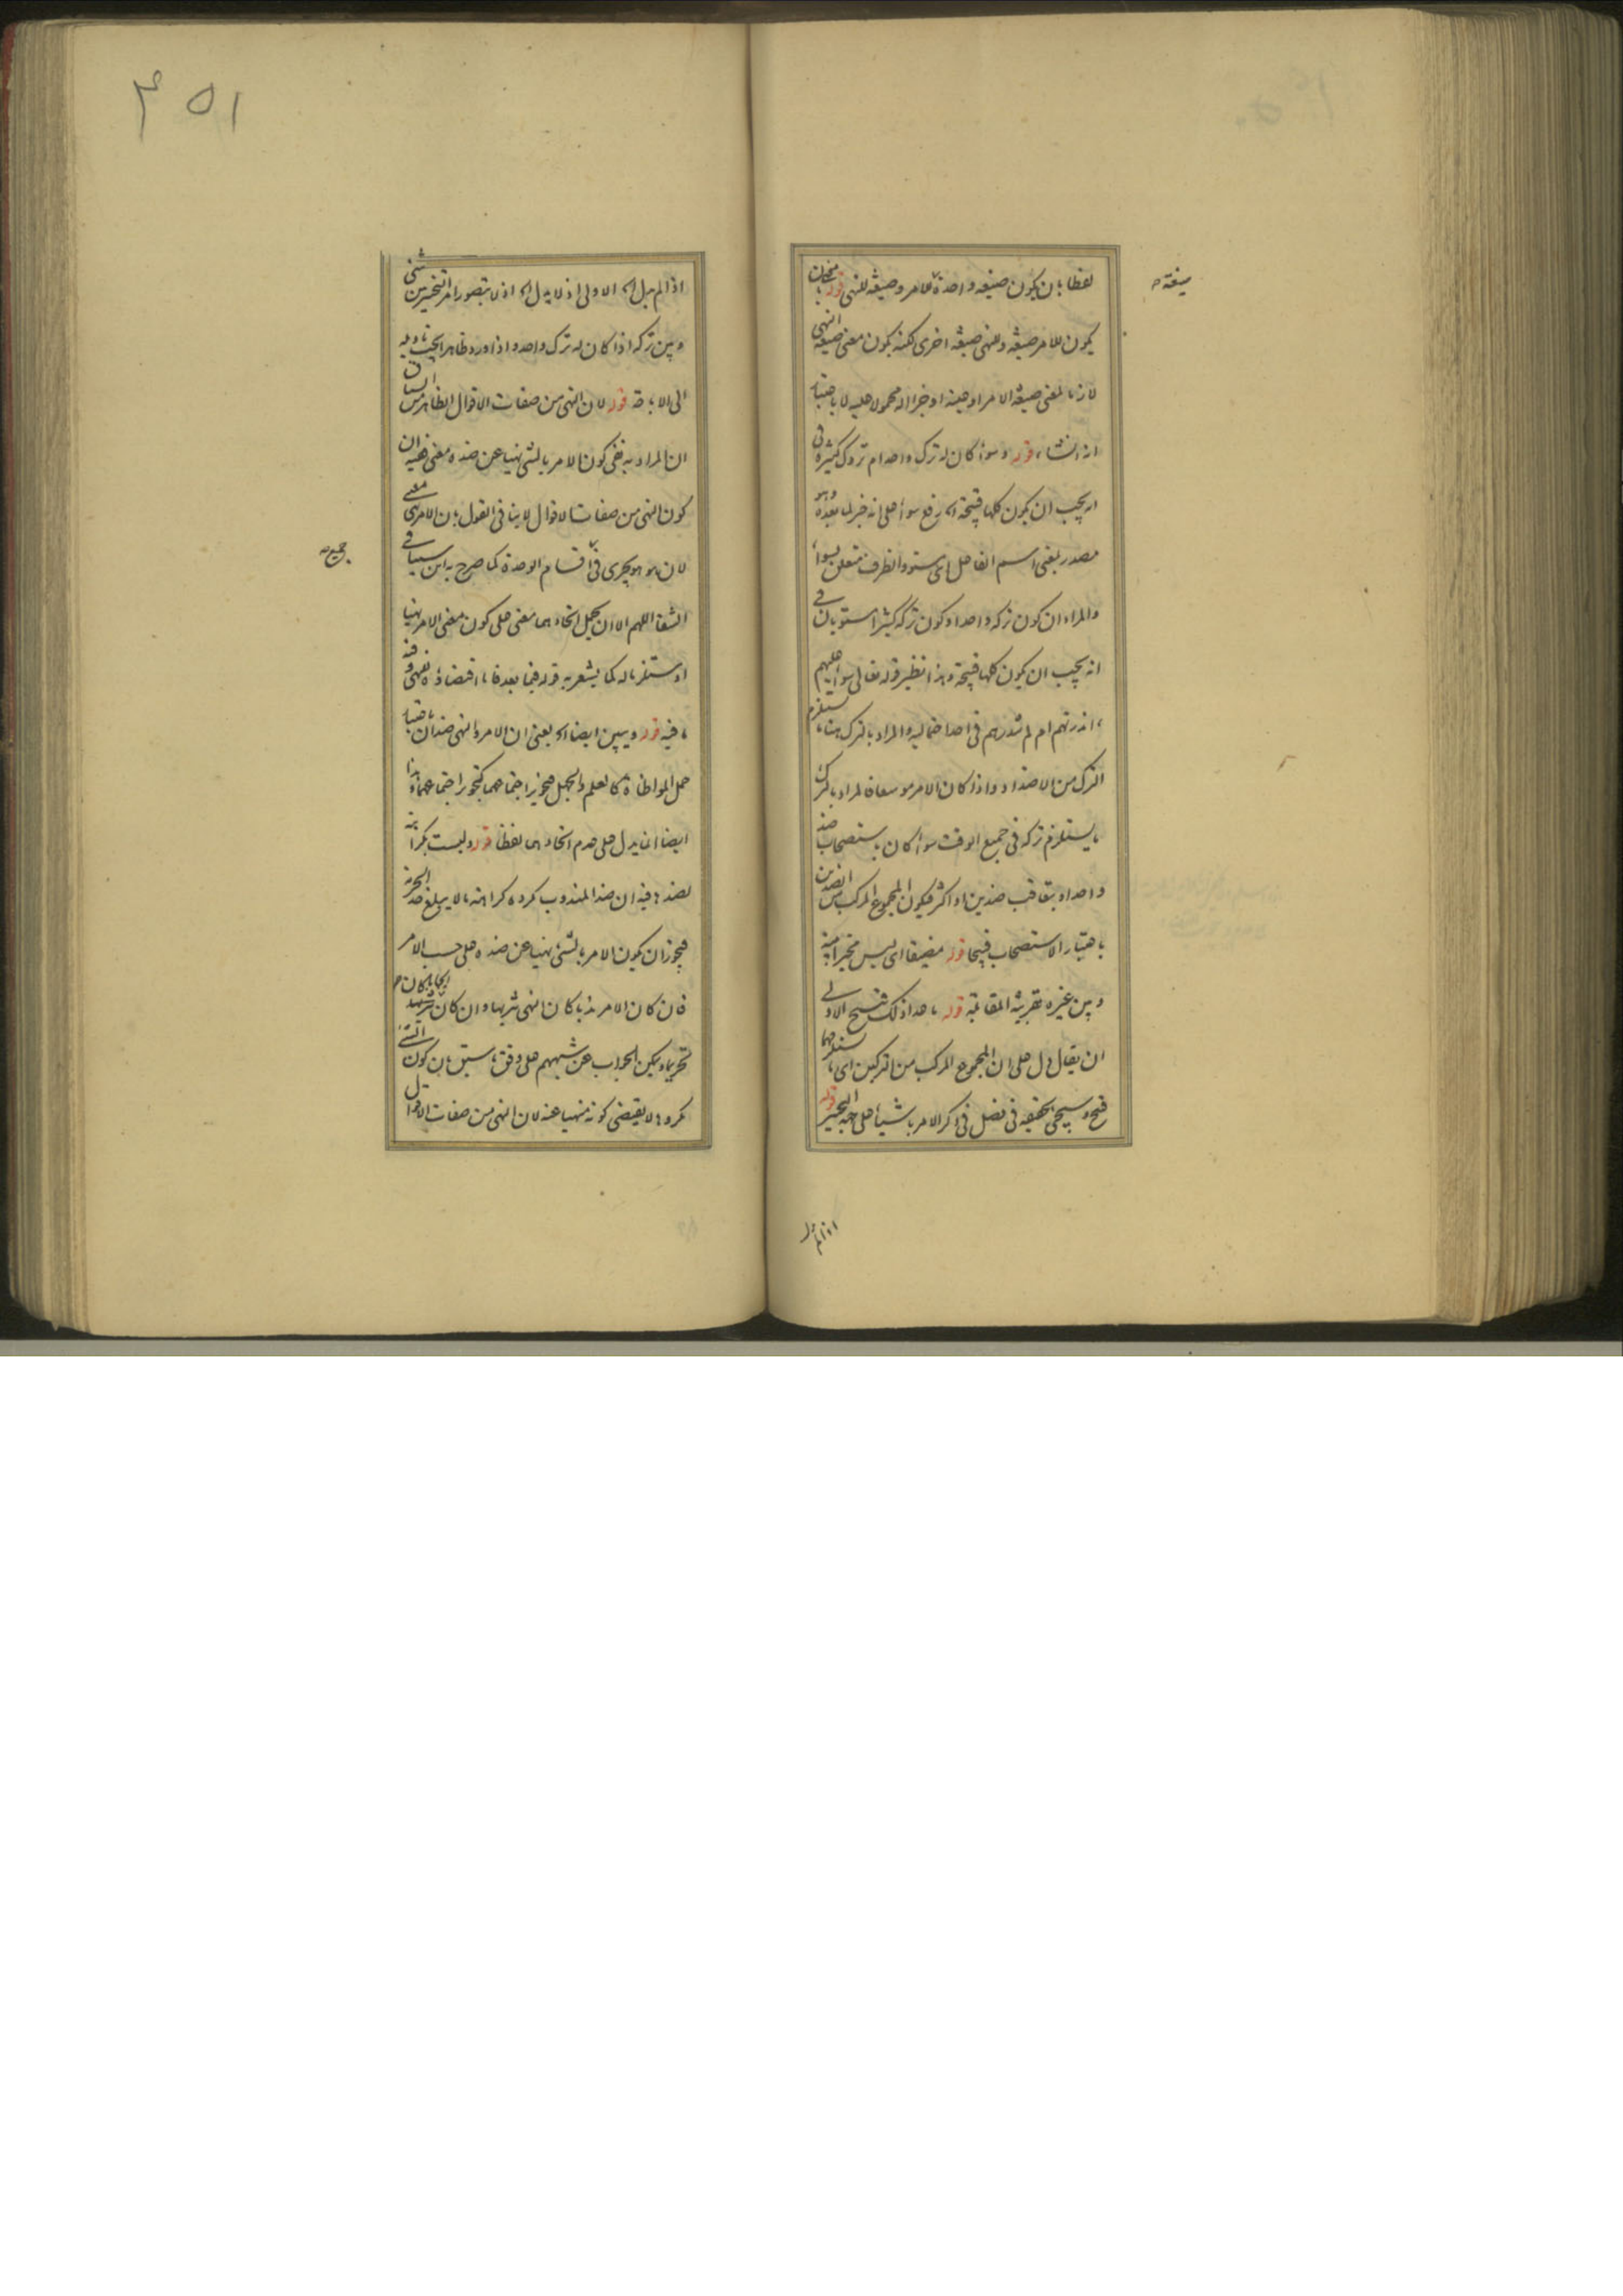 لفظا بان يكون صيغه واحدة للامر وصيغه للنهى قوله بان
يكون للامر صيغه وللنهى صيغه اخرى لكنه يكون معنى صيغة النهى
لازما لمعنى صيغة الامر او عينه او جزا له محمولا عليه لا باعتبار
انه انشاء قوله وسواء كان له ترك واحد ام تروك كثيرة فى
انه يجب ان يكون كلها قبيحة اه رفع سواء على انه خبر لما بعده وهو
مصدر بمعنى اسم الفاعل اى مستو والظرف متعلق بسواء
والمراد ان كون تركه واحدا وكون تركه كثيرا مستويان فى
انه يجب ان يكون كلها قبيحة وهذا نظير قوله تعالى سواء عليهم
ءانذرتهم ام لم تنذرهم فى احد احتماليه والمراد بالترك هنا ما يستلزم
الترك من الاضداد واذا كان الامر موسعا فالمراد بالترك
ما يستلزم تركه فى جميع الوقت سواء كان باستصحاب ضد
واحد او بتعاقب ضدين او اكثر فيكون المجموع المركب من الضدين
باعتبار الاستصحاب قبيحا قوله مضيقا اى ليس مخيرا بينه
وبين غيره بقرينة المقابلة قوله ما عدا ذلك قبيح الاولى
ان يقال دل على ان المجموع المركب من التركين اى ما يستلزمهما
قبيح وسيجى تحقيقه فى فصل فى ذكر الامر باشياء على جهة التخيير قوله
صيغة
اذا لم يدل
۴۵۱
اذا لم يدل اه الاولى اذ لا يدل اه اذ لا يتصور امر التخيير بين شئ
وبين تركه اذا كان له ترك واحد واذا ورد ظاهر يجب تاويله
الى الاباحة قوله لان النهى من صفات الاقوال الظاهر من السياق
ان المراد به نفى كون الامر بالشئ نهيا عن ضده معنى وفيه ان
كون النهى من صفات الاقوال لا ينافى القول بان الامر نهى معنى
لان هو هو يجرى فى اقسام الوحدة كما صرح به ابن سينا فى
الشفا اللهم الا ان يحمل اتحادهما معنى على كون معنى الامر نهيا
او مستلزما له كما يشعر به قوله فيما بعد فاما اقتضاؤه للنهى وفيه
ما فيه قوله ويبين ايضا اه يعنى ان الامر والنهى ضدان باعتبار
حمل المواطاة كالعلم والجهل فتجويز اجتماعهما كتجويز اجتماعهما وهذا
ايضا انما يدل على عدم اتحادهما لفظا قوله وليست بكراهة
لضدها فيه ان ضد المندوب مكروه كراهة ما لا يبلغ حد الحرمة
فيجوز ان يكون الامر بالشئ نهيا عن ضده على حسب الامر
فان كان الامر ندبا كان النهى تنزيها وان كان ايجابا كان
تحريما ويمكن الجواب عن شبههم على وفق ما سبق بان كون الشئ
مكروها لا يقتضى كونه منهيا عنه لان النهى من صفات الاقوال
جميع